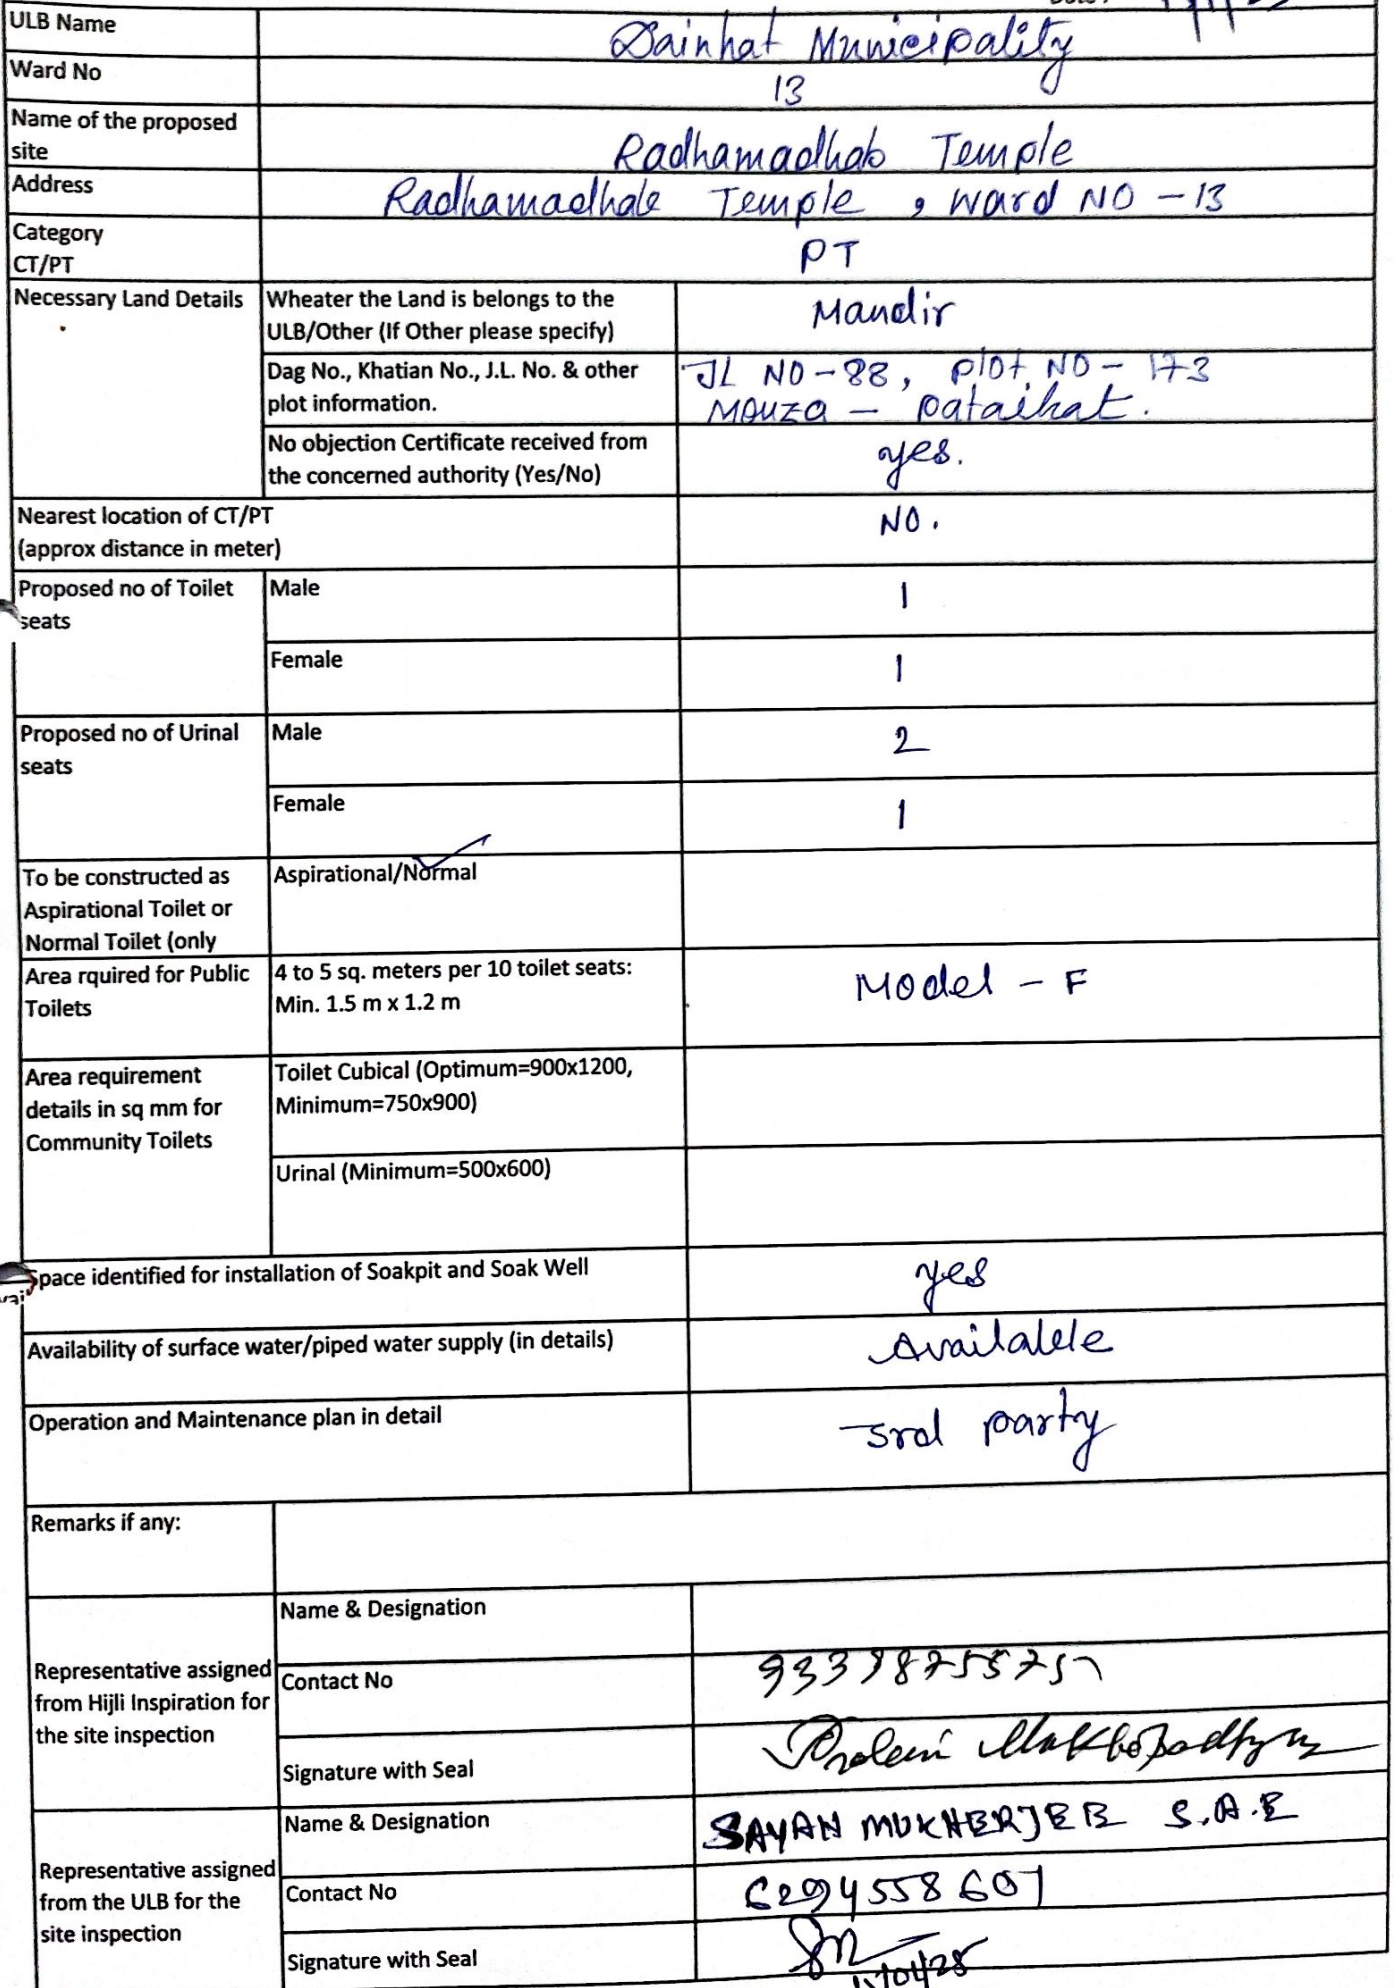 ULB Name
Dainhat Municipality
Ward No
13
Name of the proposed
site
Radhamadhab Temple
Address
Radhamadhab Temple, Ward NO - 13
Category
CT/PT
PT
Necessary Land Details
Wheater the Land is belongs to the
ULB/Other (If Other please specify)
Mandir
Dag No., Khatian No., J.L. No. & other
plot information.
JL NO - 88, plot NO - 173
Mouza - pataihat.
No objection Certificate received from
the concerned authority (Yes/No)
yes.
Nearest location of CT/PT
(approx distance in meter)
NO.
Proposed no of Toilet
seats
Male
1
Female
1
Proposed no of Urinal
seats
Male
2
Female
1
To be constructed as
Aspirational Toilet or
Normal Toilet (only
Aspirational/Normal
Area rquired for Public
Toilets
4 to 5 sq. meters per 10 toilet seats:
Min. 1.5 m x 1.2 m
Model - F
Area requirement
details in sq mm for
Community Toilets
Toilet Cubical (Optimum=900x1200,
Minimum=750x900)
Urinal (Minimum=500x600)
Space identified for installation of Soakpit and Soak Well
yes
Availability of surface water/piped water supply (in details)
Available
Operation and Maintenance plan in detail
3rd party
Remarks if any:
Representative assigned
from Hijli Inspiration for
the site inspection
Name & Designation
Contact No
Signature with Seal
Representative assigned
from the ULB for the
site inspection
Name & Designation
SAYAN MUKHERJEE S.A.E
Contact No
6294558607
Signature with Seal